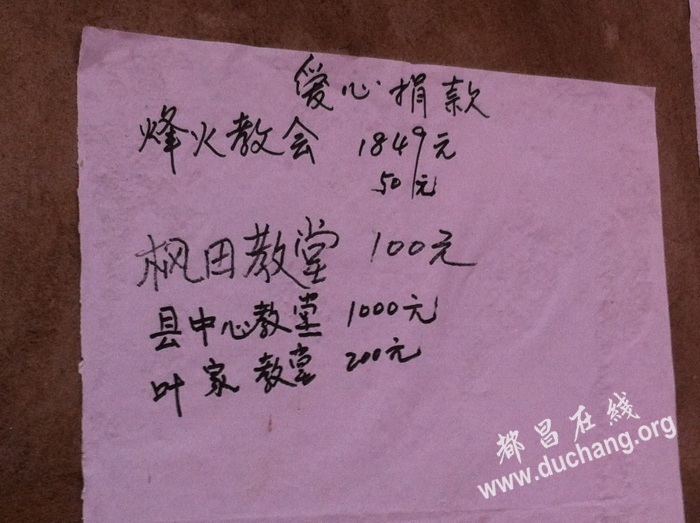 爱心捐款
烽火教会 1849元
50元
枫田教堂 100元
县中心教堂 1000元
叶家教堂 200元
都昌在线
www.duchang.org